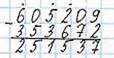 - 605209
353672
251537